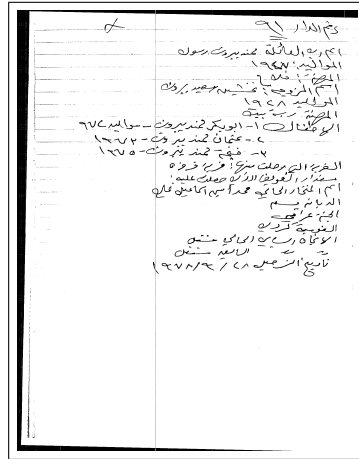 رقم الدار ٩١
اسم رب العائلة حمد بيروت رسول
المواليد: ١٩٤٧
المهنة: فلاح
اسم الزوجة: سعيد بيروت
المواليد ١٩٢٨
المهنة ربة بيت
الاطفال ١- ابوبكر حمد بيروت - مواليد ٩٧٢
٢- عثمان حمد بيروت - ١٩٧٣
٣- حمد بيروت - ١٩٧٥
القرية التي رحلت منها: قرية
مقدار التعويض الذي حصلت عليه:
اسم المختار الحالي محمد امين اسماعيل
الديانة مسلم
الجنسية عراقي
القومية كردي
الاتجاه السياسي الحالي مستقل
السابق مستقل
تاريخ الترحيل ٢٨/ /١٩٧٨